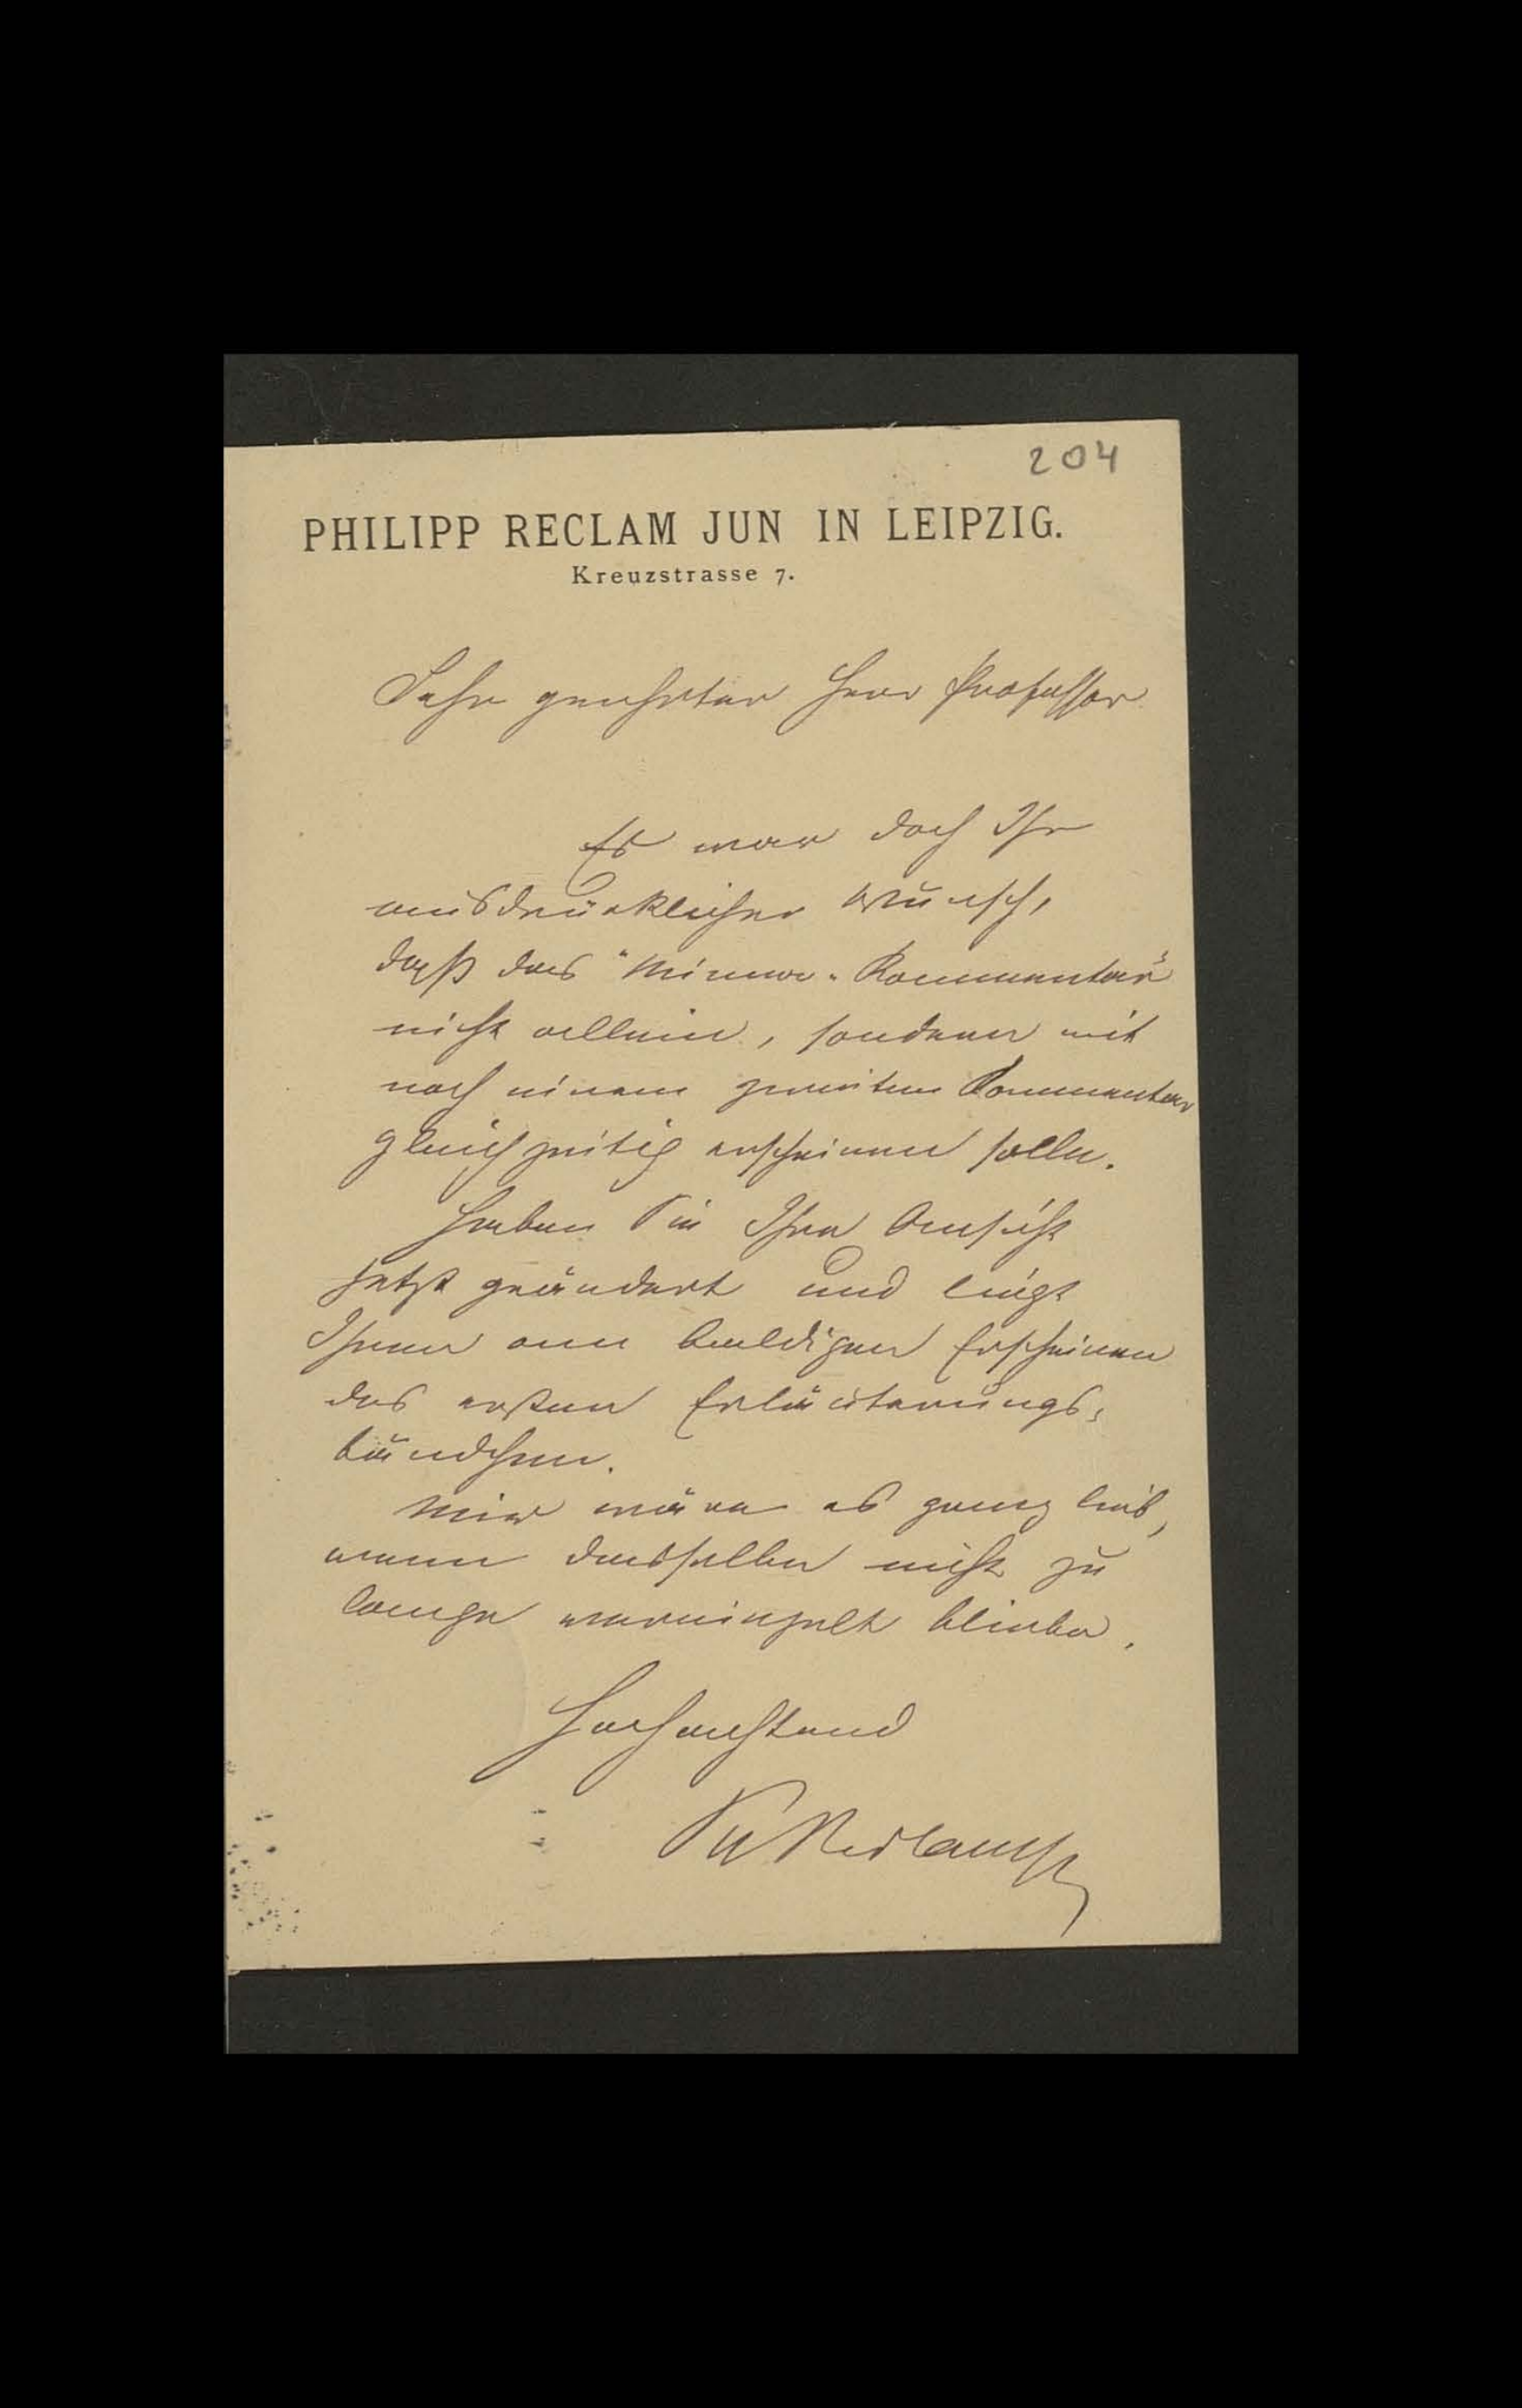 204
PHILIPP RECLAM JUN IN LEIPZIG.
Kreuzstrasse 7.
Sehr geehrter Herr Professor
Es war doch Ihr
ausdrücklicher Wunsch,
daß das "Minna-Kommentar"
nicht allein, sondern mit
noch einem zweiten Kommentar
gleichzeitig erscheinen solle.
Haben Sie Ihre Ansicht
jetzt geändert und liegt
Ihnen am baldigen Erscheinen
des ersten Erläuterungs-
bändchen.
Mir wäre es ganz lieb,
wenn dasselbe nicht zu
lange vereinzelt bliebe.
Hochachtend